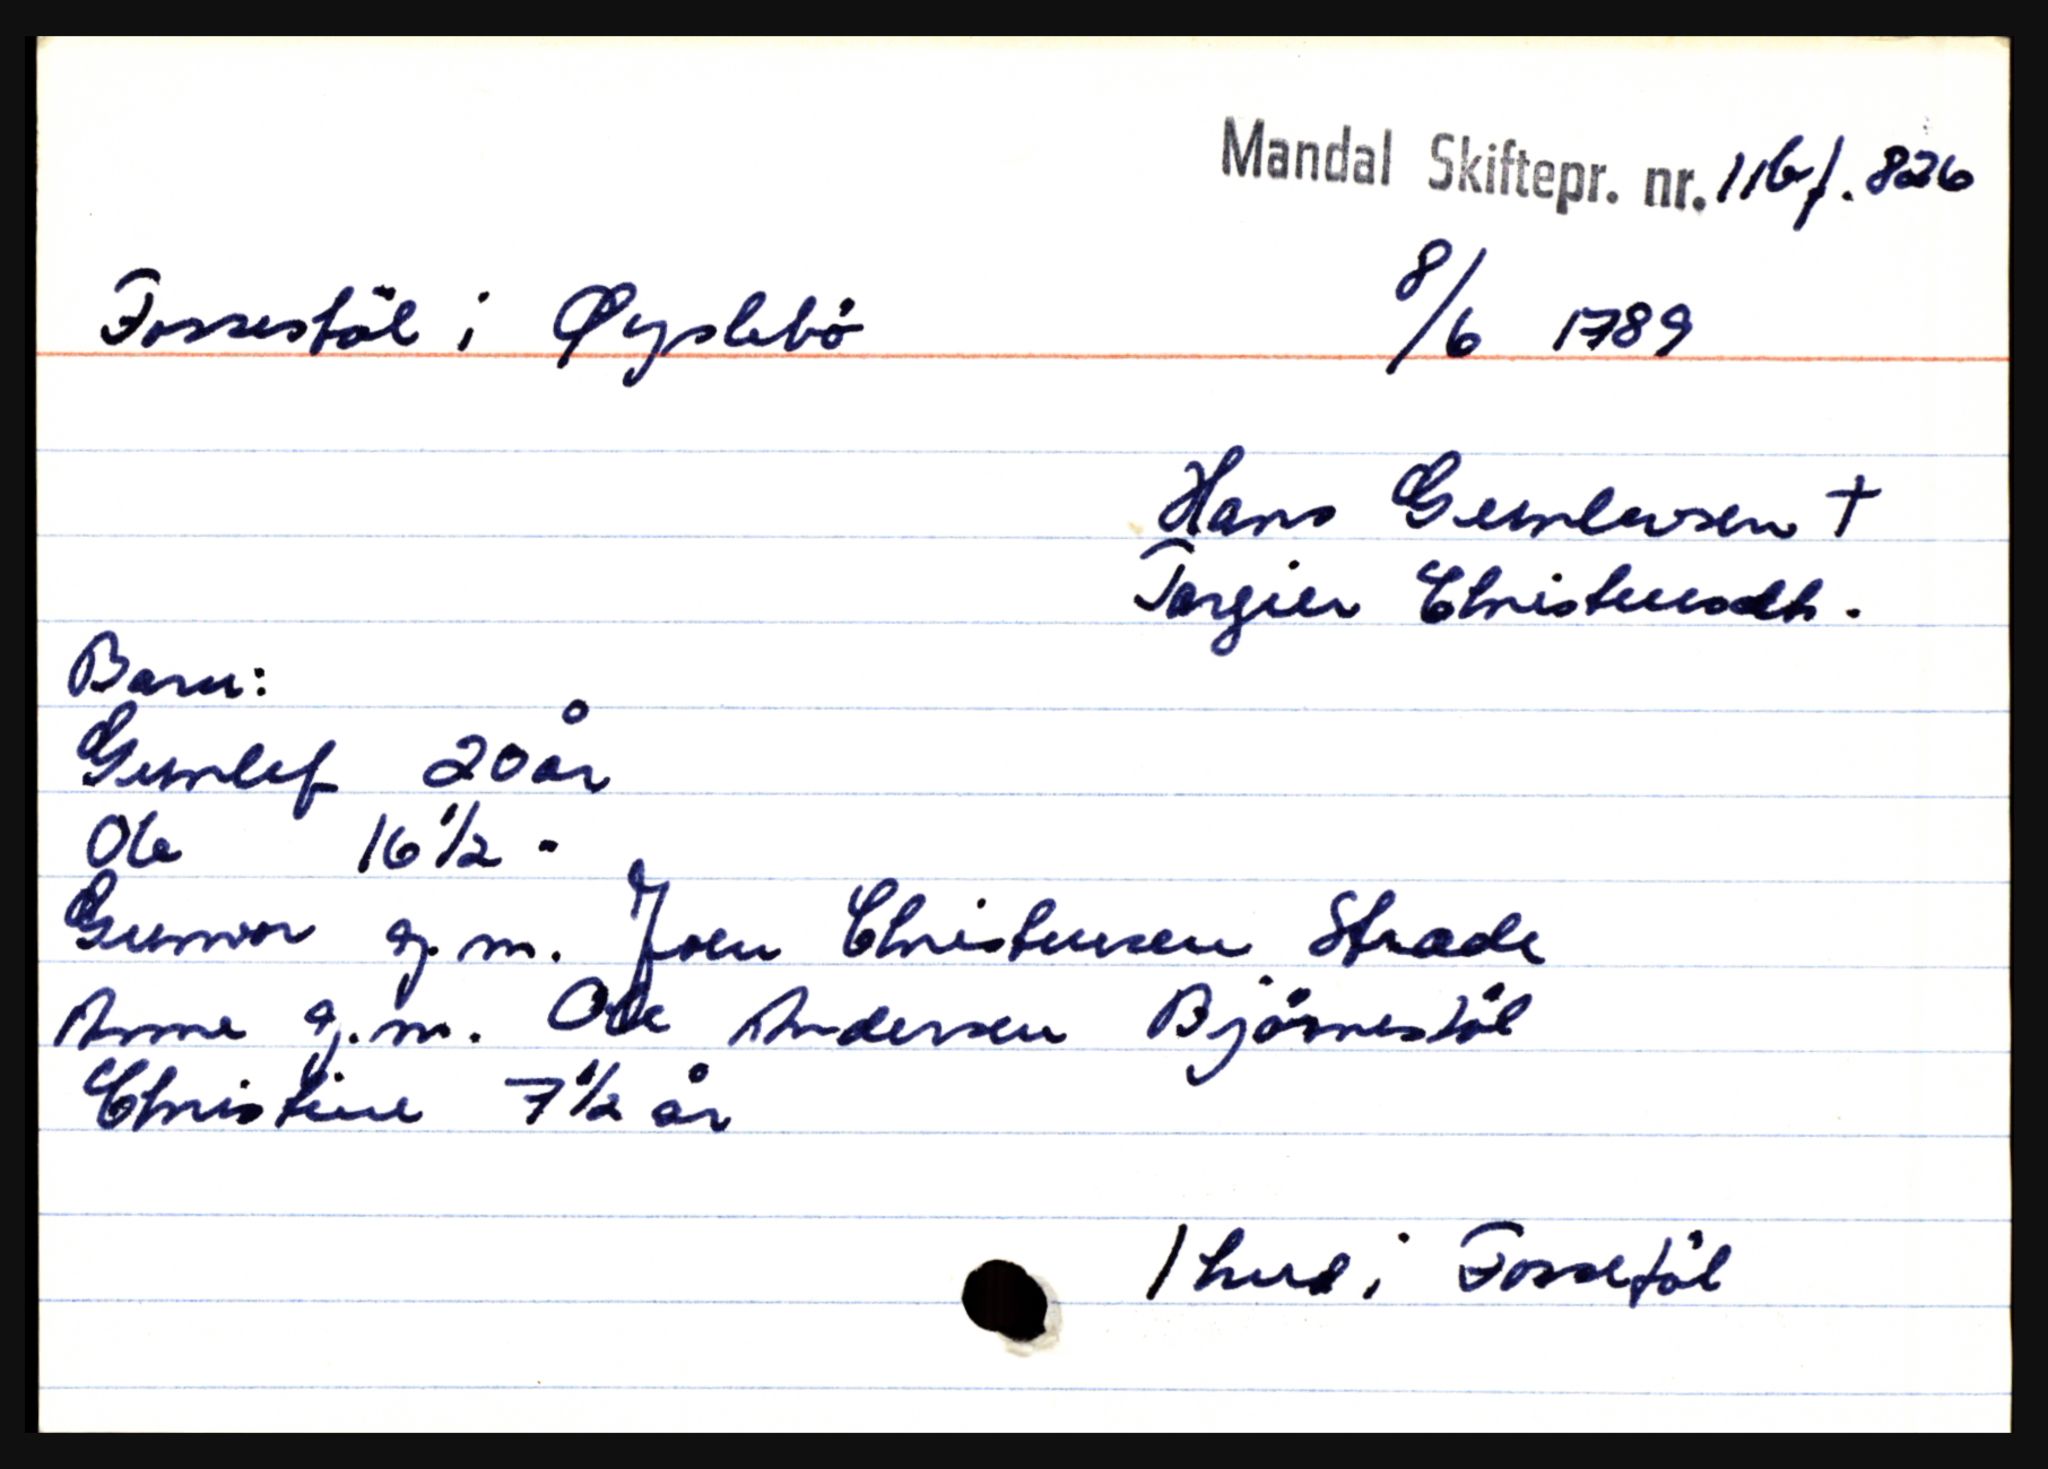 Mandal Skiftepr. nr. 11b f. 826
Fossestöl i Øyslebö 8/6 1789
Hans Gunlevsen †
Torgier Christensdt.
Barn:
Gunlef 20 år
Ole 16 1/2 "
Gunvor g.m. Joen Christensen Strade
Anne g.m. Ole Andersen Björnestöl
Christine 7 1/2 år
1 hud i Fossetöl